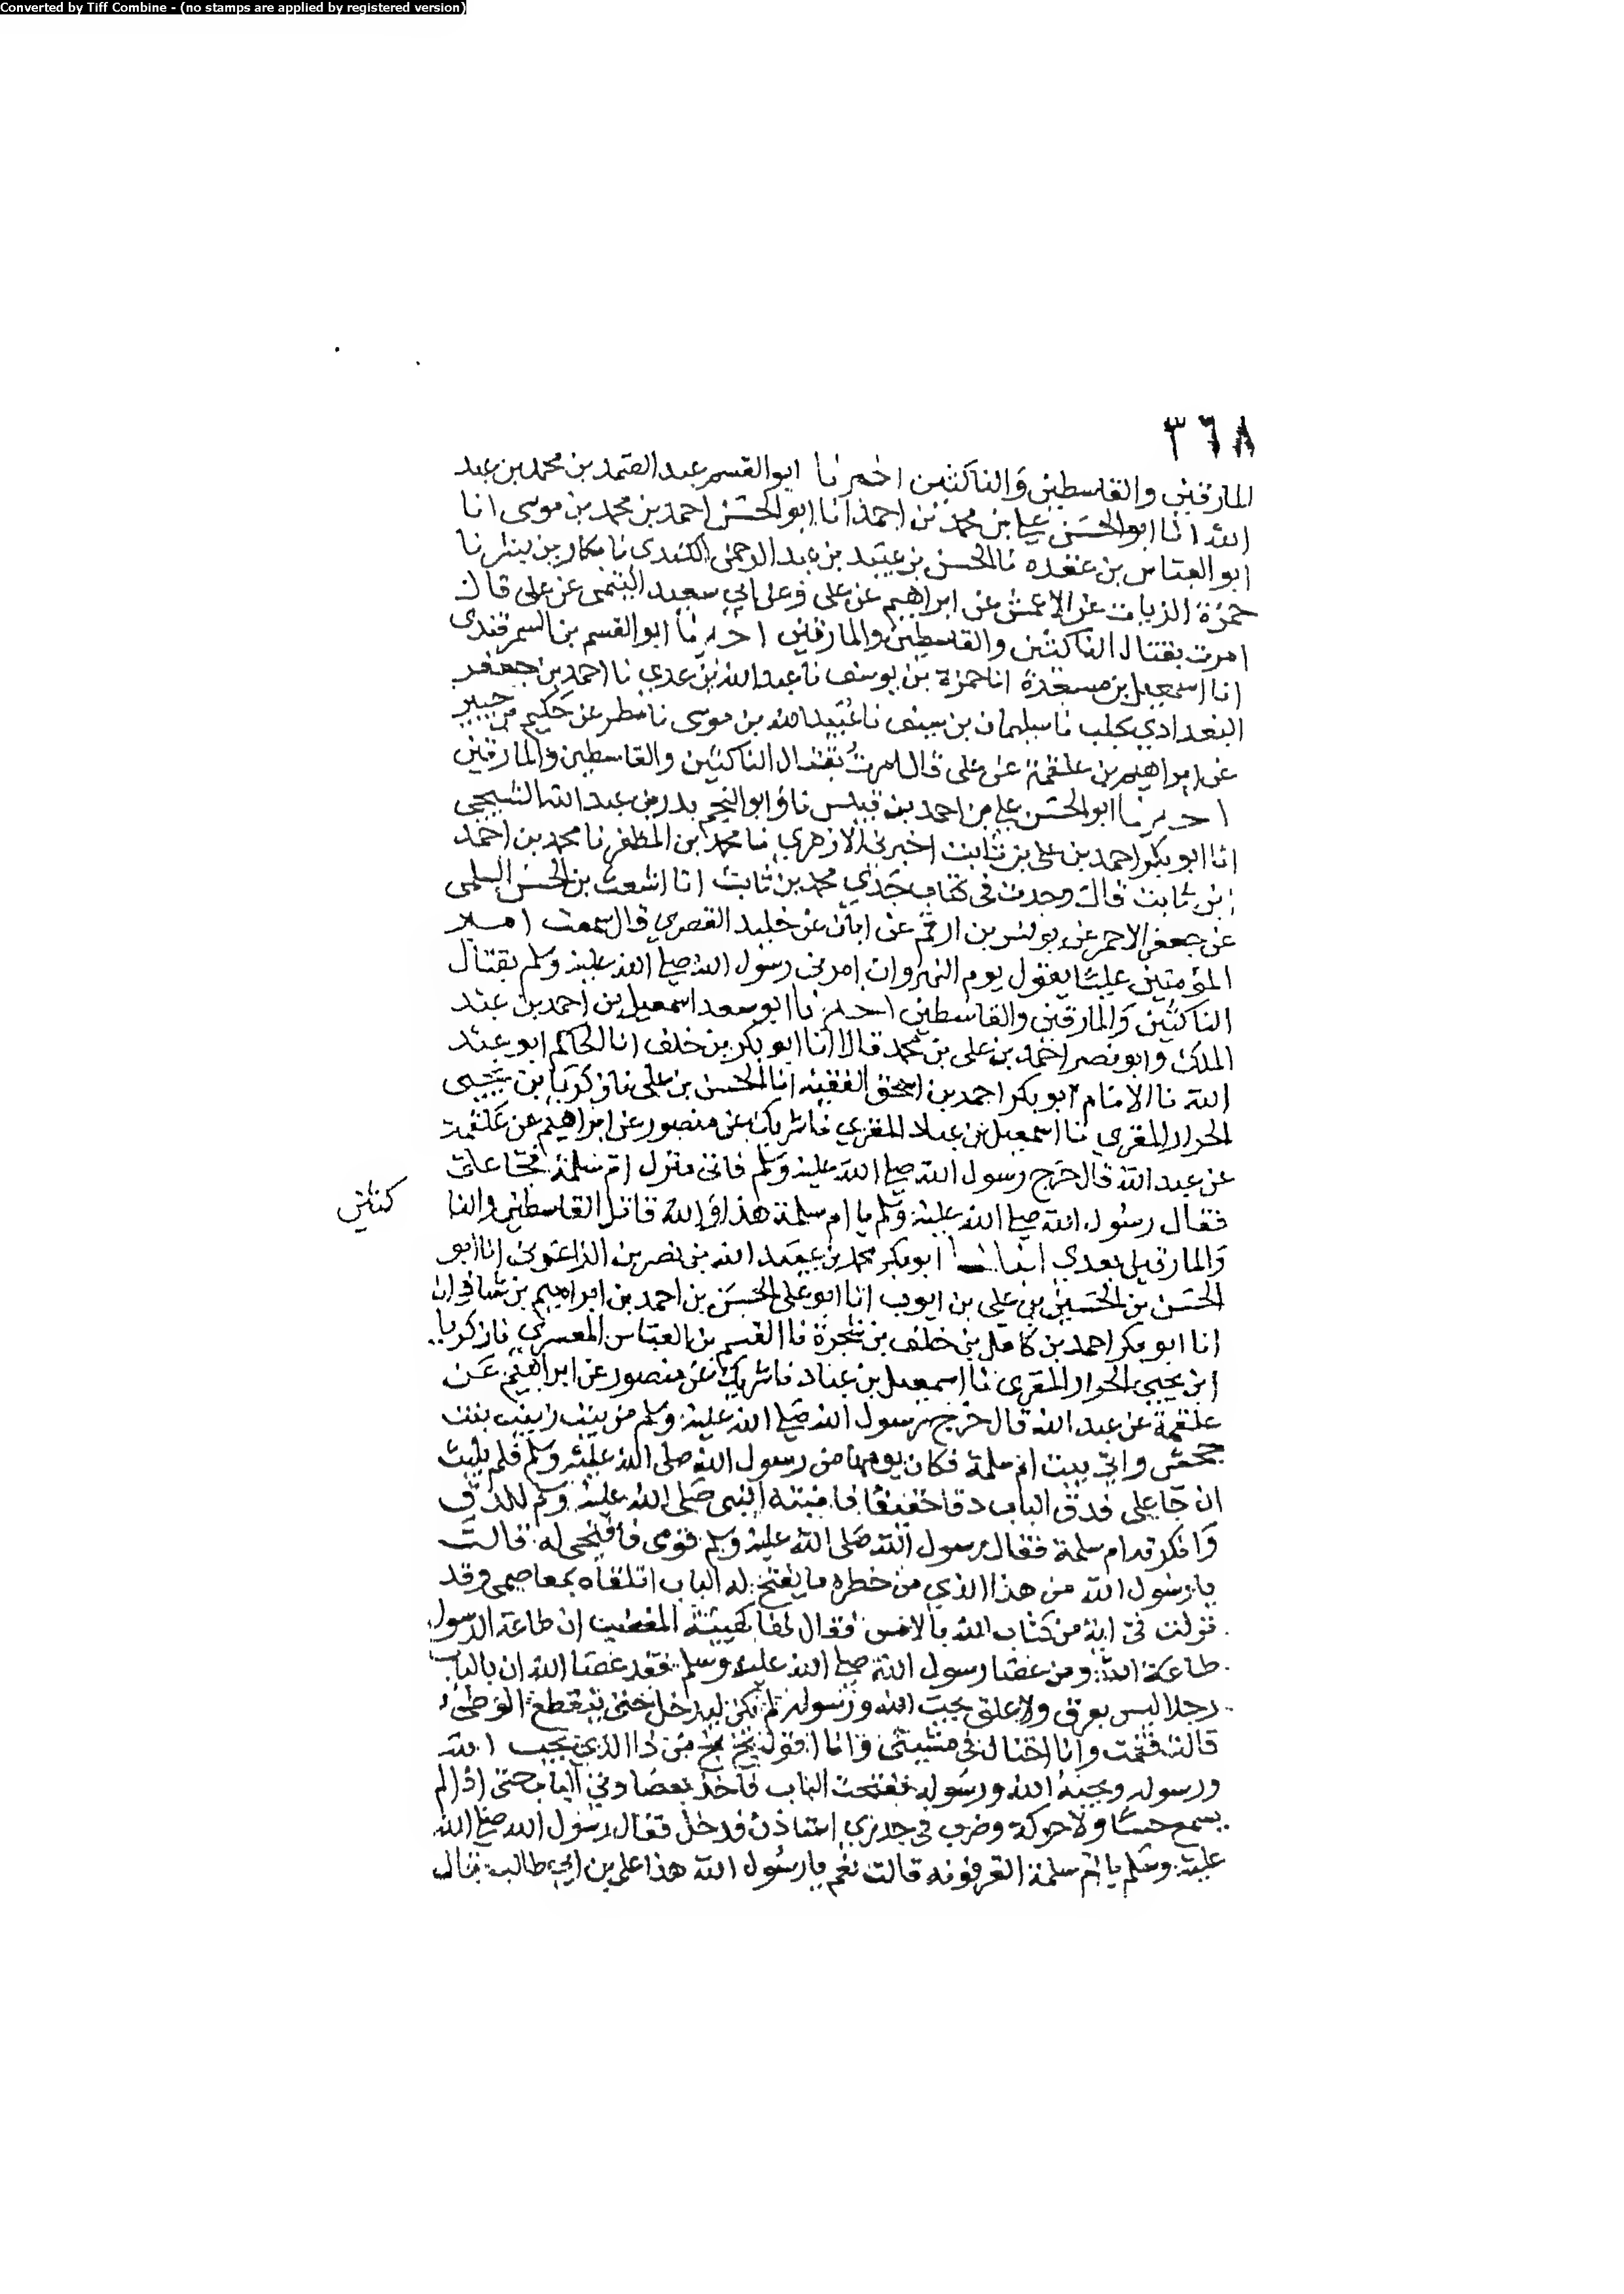 Converted by Tiff Combine - (no stamps are applied by registered version)
٣٦٨
المارقين والقاسطين والناكثين اخبرنا ابو القسم عبد الصمد بن محمد بن عبد
الله انا ابو الحسن علي بن محمد بن احمد انا ابو الحسن احمد بن محمد بن موسى انا
ابو العباس بن عقده نا الحسن بن عبيد بن عبد الرحمن الكندي نا بكار بن بشر نا
حمزة الزيات عن الاعمش عن ابراهيم عن علي وعن ابي سعيد التيمي عن علي قال
امرت بقتال الناكثين والقاسطين والمارقين اخبرنا ابو القسم بن السمرقندي
انا اسمعيل بن مسعدة انا حمزة بن يوسف نا عبد الله بن عدي نا احمد بن جعفر
البغدادي بحلب نا سليمان بن سيف نا عبيد الله بن موسى نا مطر عن حكيم بن جبير
عن ابراهيم بن علقمة عن علي قال امرت بقتال الناكثين والقاسطين والمارقين
اخبرنا ابو الحسن علي بن احمد بن قبيس نا وابو النجم بدر بن عبد الله الشيحي
انا ابو بكر احمد بن علي بن ثابت اخبرني الازهري نا محمد بن المظفر نا محمد بن احمد
بن ثابت قال وجدت في كتاب جدي محمد بن ثابت انا اشعث بن الحسن السلمي
عن جعفر الاحمر عن يونس بن ارقم عن ابان عن خليد القصري قال سمعت امير
المؤمنين عليا يقول يوم النهروان امرني رسول الله صلى الله عليه وسلم بقتال
الناكثين والمارقين والقاسطين اخبرنا ابو سعد اسمعيل بن احمد بن عبد
الملك وابو نصر احمد بن علي بن محمد قالا انا ابو بكر بن خلف انا الحاكم ابو عبد
الله نا الامام ابو بكر احمد بن اسحق الفقيه انا الحسن بن علي نا زكريا بن يحيى
الحرار المقري نا اسمعيل بن عباد المقري نا شريك عن منصور عن ابراهيم عن علقمة
عن عبد الله قال خرج رسول الله صلى الله عليه وسلم فاتى منزل ام سلمة فجا علي
فقال رسول الله صلى الله عليه وسلم يا ام سلمة هذا والله قاتل القاسطين والنا
كثين
والمارقين بعدي انبانا ابو بكر محمد بن عبيد الله بن نصر بن الزاغوني انا ابو
الحسن بن الحسين بن علي بن ايوب انا ابو علي الحسن بن احمد بن ابراهيم بن شاذان
انا ابو بكر احمد بن كامل بن خلف بن شجرة نا القسم بن العباس المعسري نا زكريا
ابن يحيى الحرار المقري نا اسمعيل بن عباد نا شريك عن منصور عن ابراهيم عن
علقمة عن عبد الله قال خرج رسول الله صلى الله عليه وسلم من بيت زينب بنت
جحش واتى بيت ام سلمة فكان يومها من رسول الله صلى الله عليه وسلم فلم يلبث
ان جا علي فدق الباب دقا خفيفا فانتبه النبي صلى الله عليه وسلم للدق
وانكرته ام سلمة فقال رسول الله صلى الله عليه وسلم قومي فافتحي له قالت
يا رسول الله من هذا الذي من خطره ما يفتح له الباب اتلقاه بمعاصمي وقد
نزلت في اية من كتاب الله بالامس فقال لها كهيئة المغضب ان طاعة الرسول
طاعة الله ومن عصا رسول الله صلى الله عليه وسلم فقد عصا الله ان بالباب
رجلا ليس بعرق ولا علق يحب الله ورسوله لم يكن ليدخل حتى ينقطع الوطئ
قالت فقمت وانا اختال في مشيتي وانا اقول بخ بخ من ذا الذي يحب الله
ورسوله ويحبه الله ورسوله ففتحت الباب فاخذ بعضادتي الباب حتى اذا لم
يسمع حسا ولا حركة وصرت في خدري استاذن فدخل فقال رسول الله صلى الله
عليه وسلم يا ام سلمة اتعرفونه قالت نعم يا رسول الله هذا علي بن ابي طالب قال